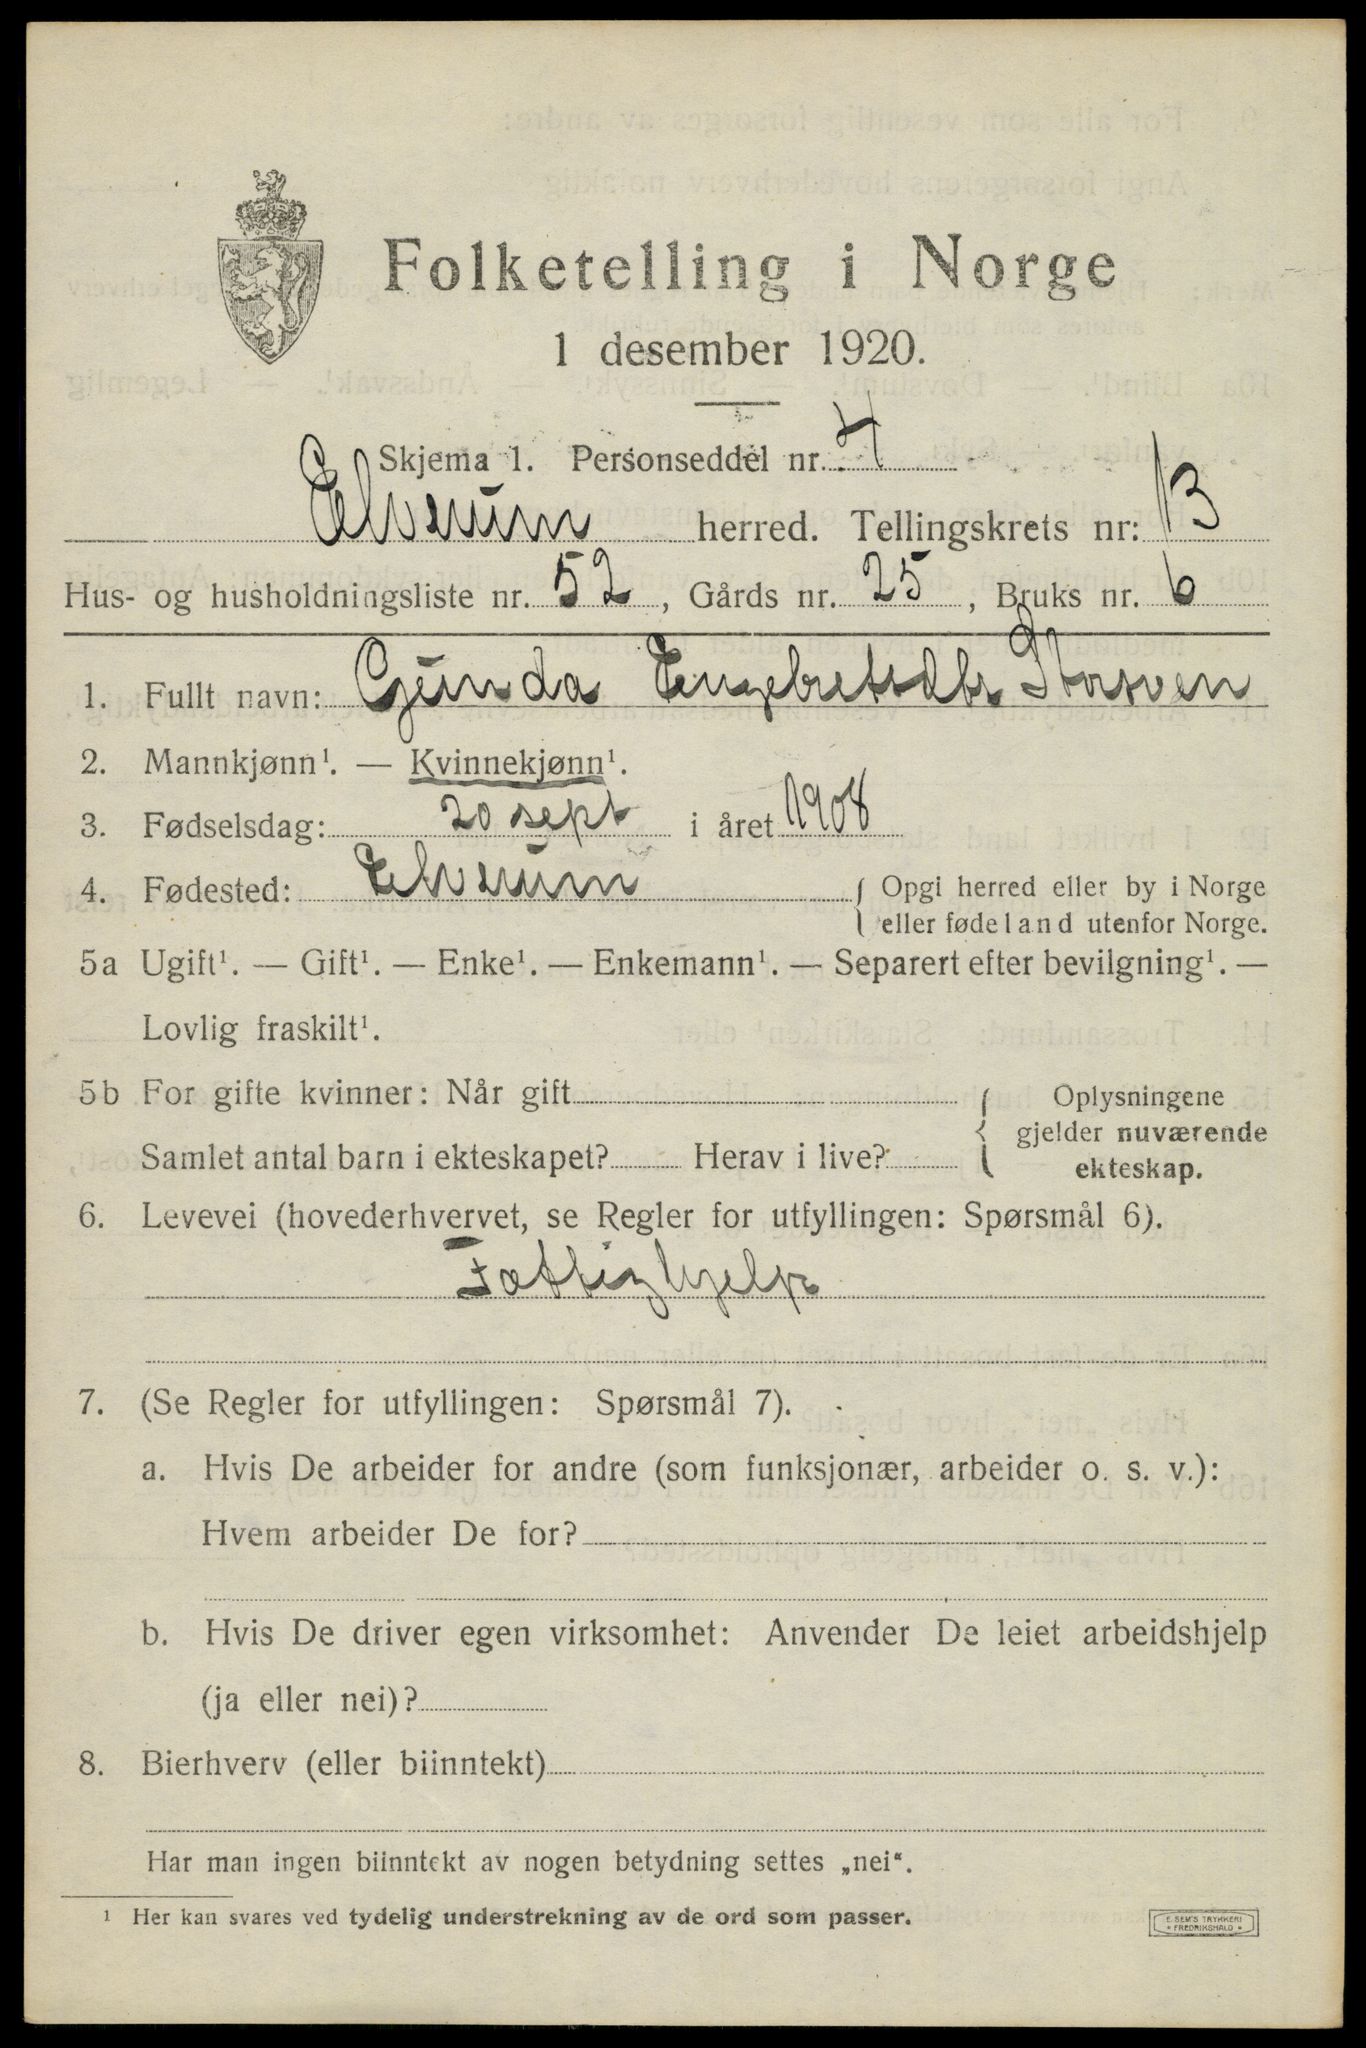 Folketelling i Norge
1 desember 1920.
Skjema 1. Personseddel nr. 4
Elverum herred. Tellingskrets nr: 13
Hus- og husholdningsliste nr. 52, Gårds nr. 25, Bruks nr. 6
1. Fullt navn: Gunda Engebretsdtr Storsven
2. Mannkjønn¹. — Kvinnekjønn¹.
3. Fødselsdag: 20 sept i året 1908
4. Fødested: Elverum { Opgi herred eller by i Norge
eller fødeland utenfor Norge.
5a Ugift¹. — Gift¹. — Enke¹. — Enkemann¹. — Separert efter bevilgning¹. —
Lovlig fraskilt¹.
5b For gifte kvinner: Når gift
Samlet antal barn i ekteskapet? Herav i live?
{ Oplysningene
gjelder nuværende
ekteskap.
6. Levevei (hovederhvervet, se Regler for utfyllingen: Spørsmål 6).
Fattighjelp
7. (Se Regler for utfyllingen: Spørsmål 7).
a. Hvis De arbeider for andre (som funksjonær, arbeider o. s. v.):
Hvem arbeider De for?
b. Hvis De driver egen virksomhet: Anvender De leiet arbeidshjelp
(ja eller nei)?
8. Bierhverv (eller biinntekt)
Har man ingen biinntekt av nogen betydning settes „nei“.
¹ Her kan svares ved tydelig understrekning av de ord som passer.
E. SEM'S TRYKKERI
* FREDRIKSHALD *